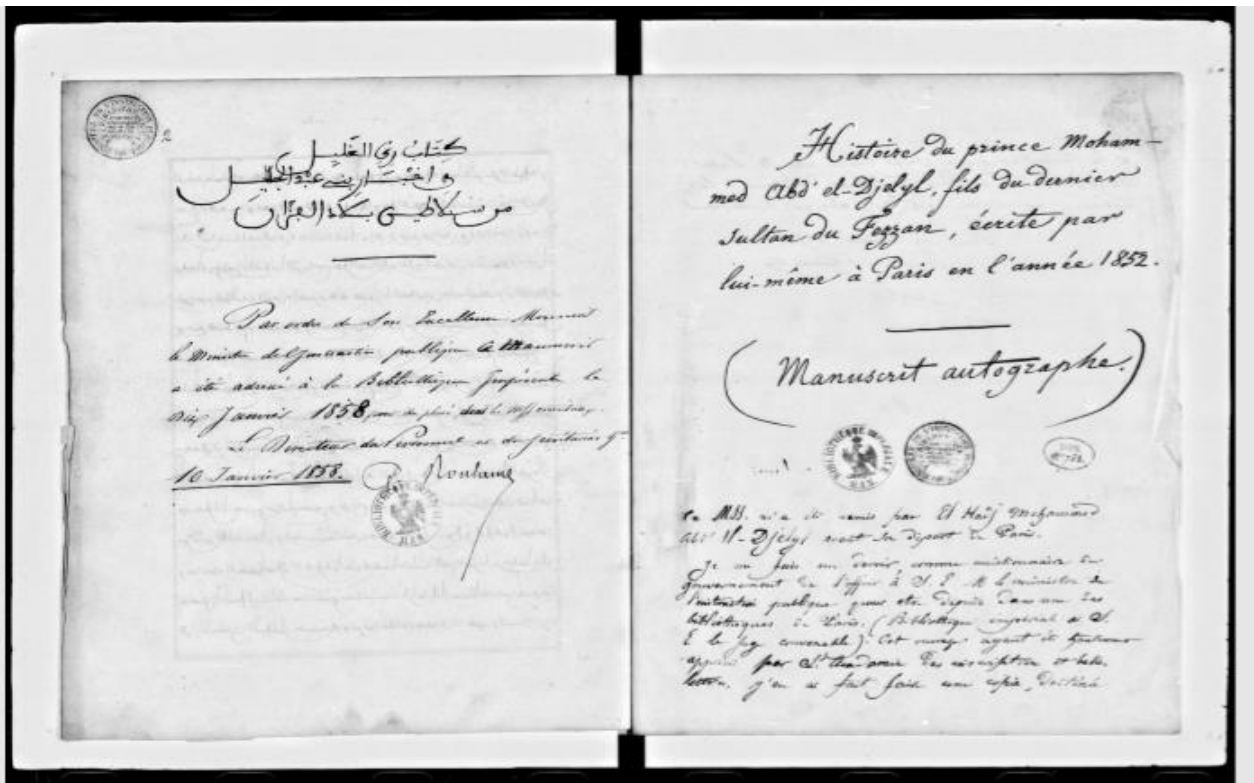 كتاب ري الغليل
في اخبار بني عبد الجليل
سلاطين بلاد الفزان
Par ordre de Son Excellence Monsieur
le Ministre de l'Instruction publique ce Manuscrit
a été adressé à la Bibliothèque Impériale le
dix Janvier 1858, pour être placé dans les
Le Directeur du Personnel et du Secrétariat gal
10 Janvier 1858. Roulland
Histoire du prince Moham-
med Abd' el-Djelyl, fils du dernier
sultan du Fezzan, écrite par
lui-même à Paris en l'année 1852.
(Manuscrit autographe.)
BIBLIOTHÈQUE IMPÉRIALE MAN.
BIBLIOTHÈQUE IMPÉRIALE MAN.
Ce MSS. m'a été remis par El Hadj Mohammed
Abd' el-Djelyl avant son départ de Paris.
Je me fais un devoir, comme missionnaire du
gouvernement de l'offrir à S. E. M. le ministre de
l'instruction publique pour être déposé dans une des
bibliothèques de Paris. (Bibliothèque impériale si S.
E. le juge convenable). Cet ouvrage ayant été
par l'Académie des inscriptions et belles
lettres, j'en ai fait faire une copie, destinée